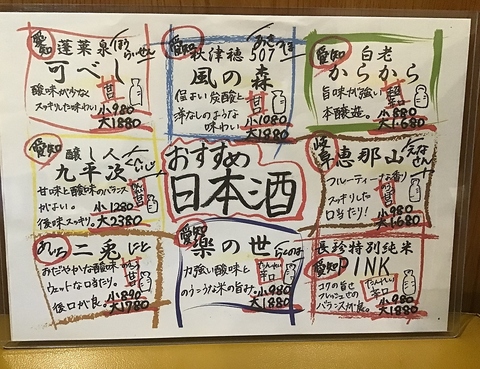 愛知 蓬莱泉 ほうらいせん
可べし
酸味が少なく
スッキリした味わい
小980
大1880
愛知 秋津穂507 あきつほ
風の森
程よい炭酸と
洋なしのような
味わい
小1080
大1880
愛知 白老
からから
旨味が強い
本醸造。
小880
大1680
愛知 醸し人
九平次 くへいじ
甘味と酸味のバランス
がよい。
後味スッキリ。
小1280
大2380
おすすめ
日本酒
岐阜 恵那山 えなさん
フルーティーな香り
スッキリした
口当たり!
小980
大1680
二兎 にと
おだやかな酸味
ウェットな口当たり。
後口が良。
小890
大1780
愛知 楽の世 らくのよ
力強い酸味と
のうこうな米の旨み。
小980
大1880
長珍特別純米
愛知 PINK
コクの旨せ
フレッシュせの
バランスが良。
たんれい
辛口
小980
大1880